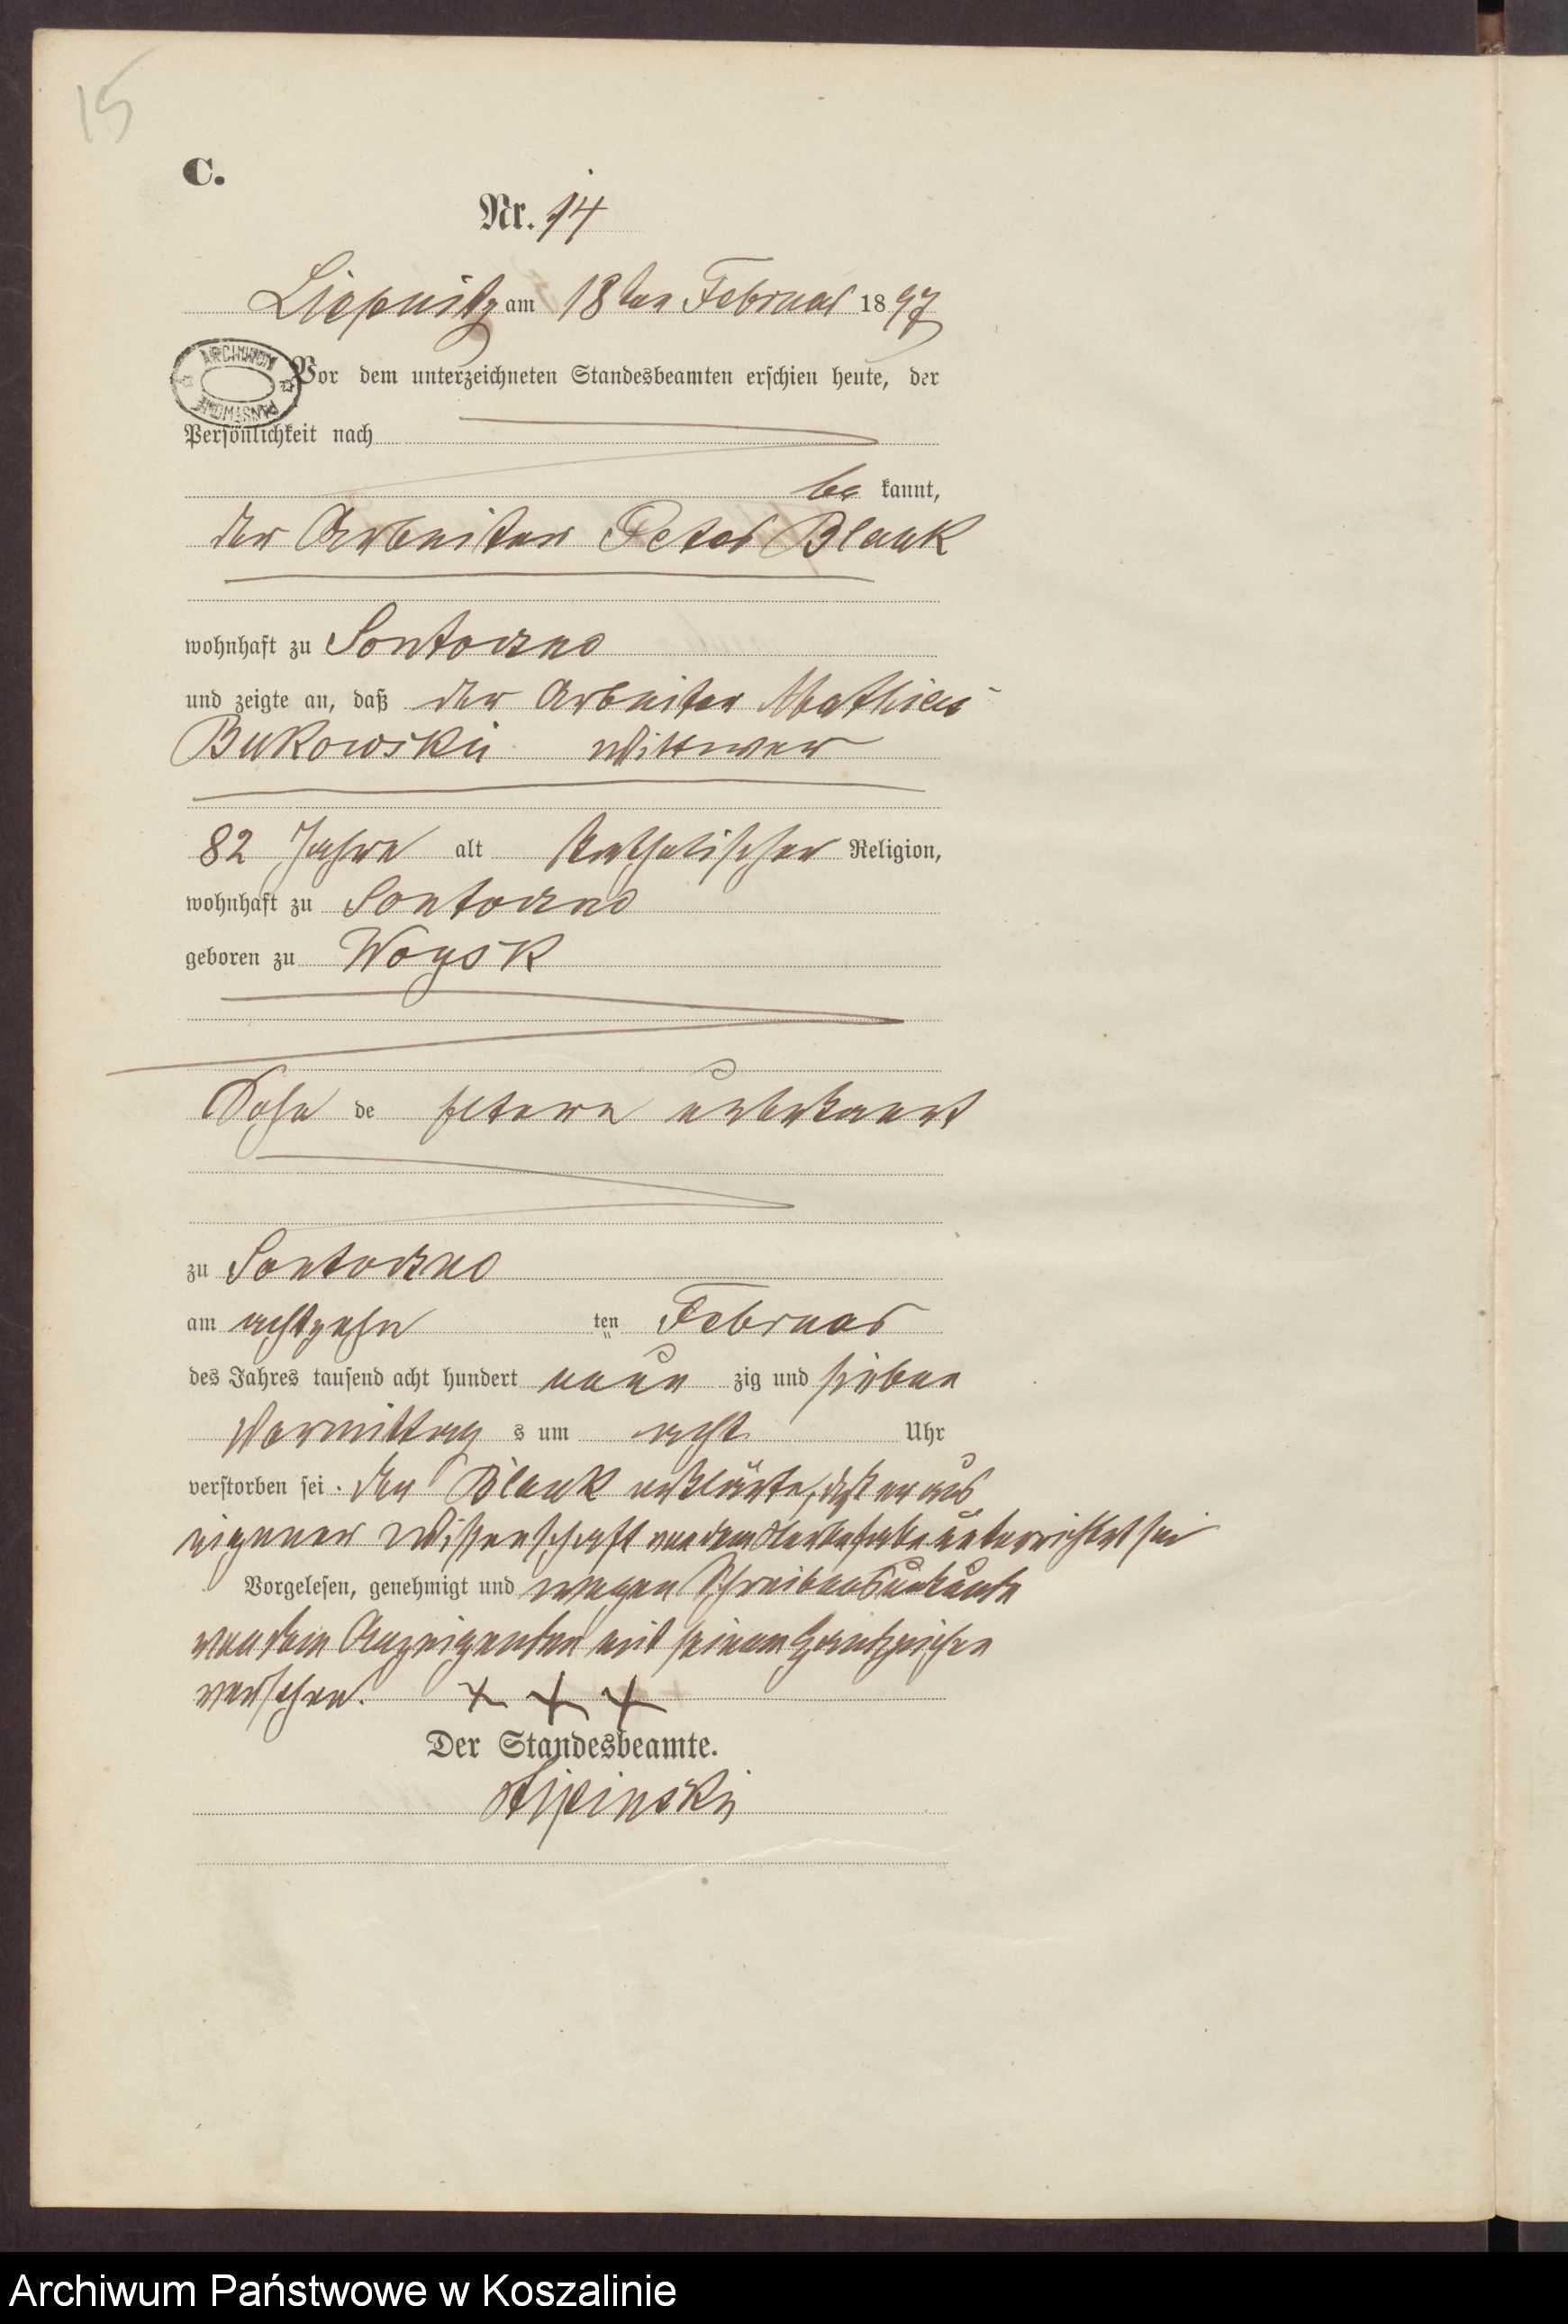 15
C.
Nr. 14
Liepnitz am 18ten Februar 1897
ARCHIWUM
PAŃSTWOWE
Vor dem unterzeichneten Standesbeamten erschien heute, der
Persönlichkeit nach
be kannt,
der Arbeiter Peter Blank
wohnhaft zu Sontorzno
und zeigte an, daß der Arbeiter Mathias
Bukowski Wittwer
82 Jahre alt katholischer Religion,
wohnhaft zu Sontorzno
geboren zu Woysk
Sohn de Eltern unbekannt
zu Sontorzno
am achtzehn ten Februar
des Jahres tausend acht hundert neun zig und sieben
Vormittag s um acht Uhr
verstorben sei. Der Blank erklärte, daß er aus
eigener Wissenschaft von dem Sterbefalle unterrichtet sei
Vorgelesen, genehmigt und wegen Schreibensunkunde
von dem Anzeigenden mit seinem Handzeichen
versehen. + + +
Der Standesbeamte.
Archiwum Państwowe w Koszalinie